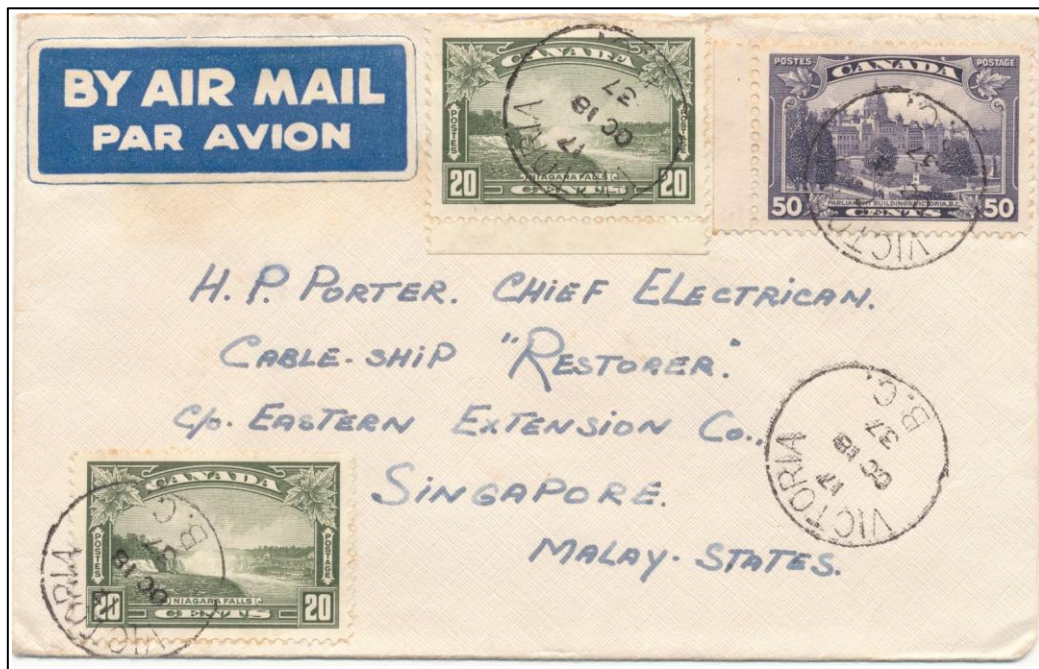 BY AIR MAIL
PAR AVION
CANADA
POSTES
NIAGARA FALLS
20 CENTS 20
POSTES POSTAGE
CANADA
PARLIAMENT BUILDINGS, VICTORIA, B.C.
50 CENTS 50
VICTORIA
OC 18
37
VICTORIA
H. P. PORTER. CHIEF ELECTRICAN.
CABLE-SHIP "RESTORER".
C/o. EASTERN EXTENSION Co.,
SINGAPORE.
MALAY-STATES.
VICTORIA B.C.
17
OC 18
37
CANADA
POSTES POSTAGE
NIAGARA FALLS
20 CENTS 20
VICTORIA B.C.
OC 18